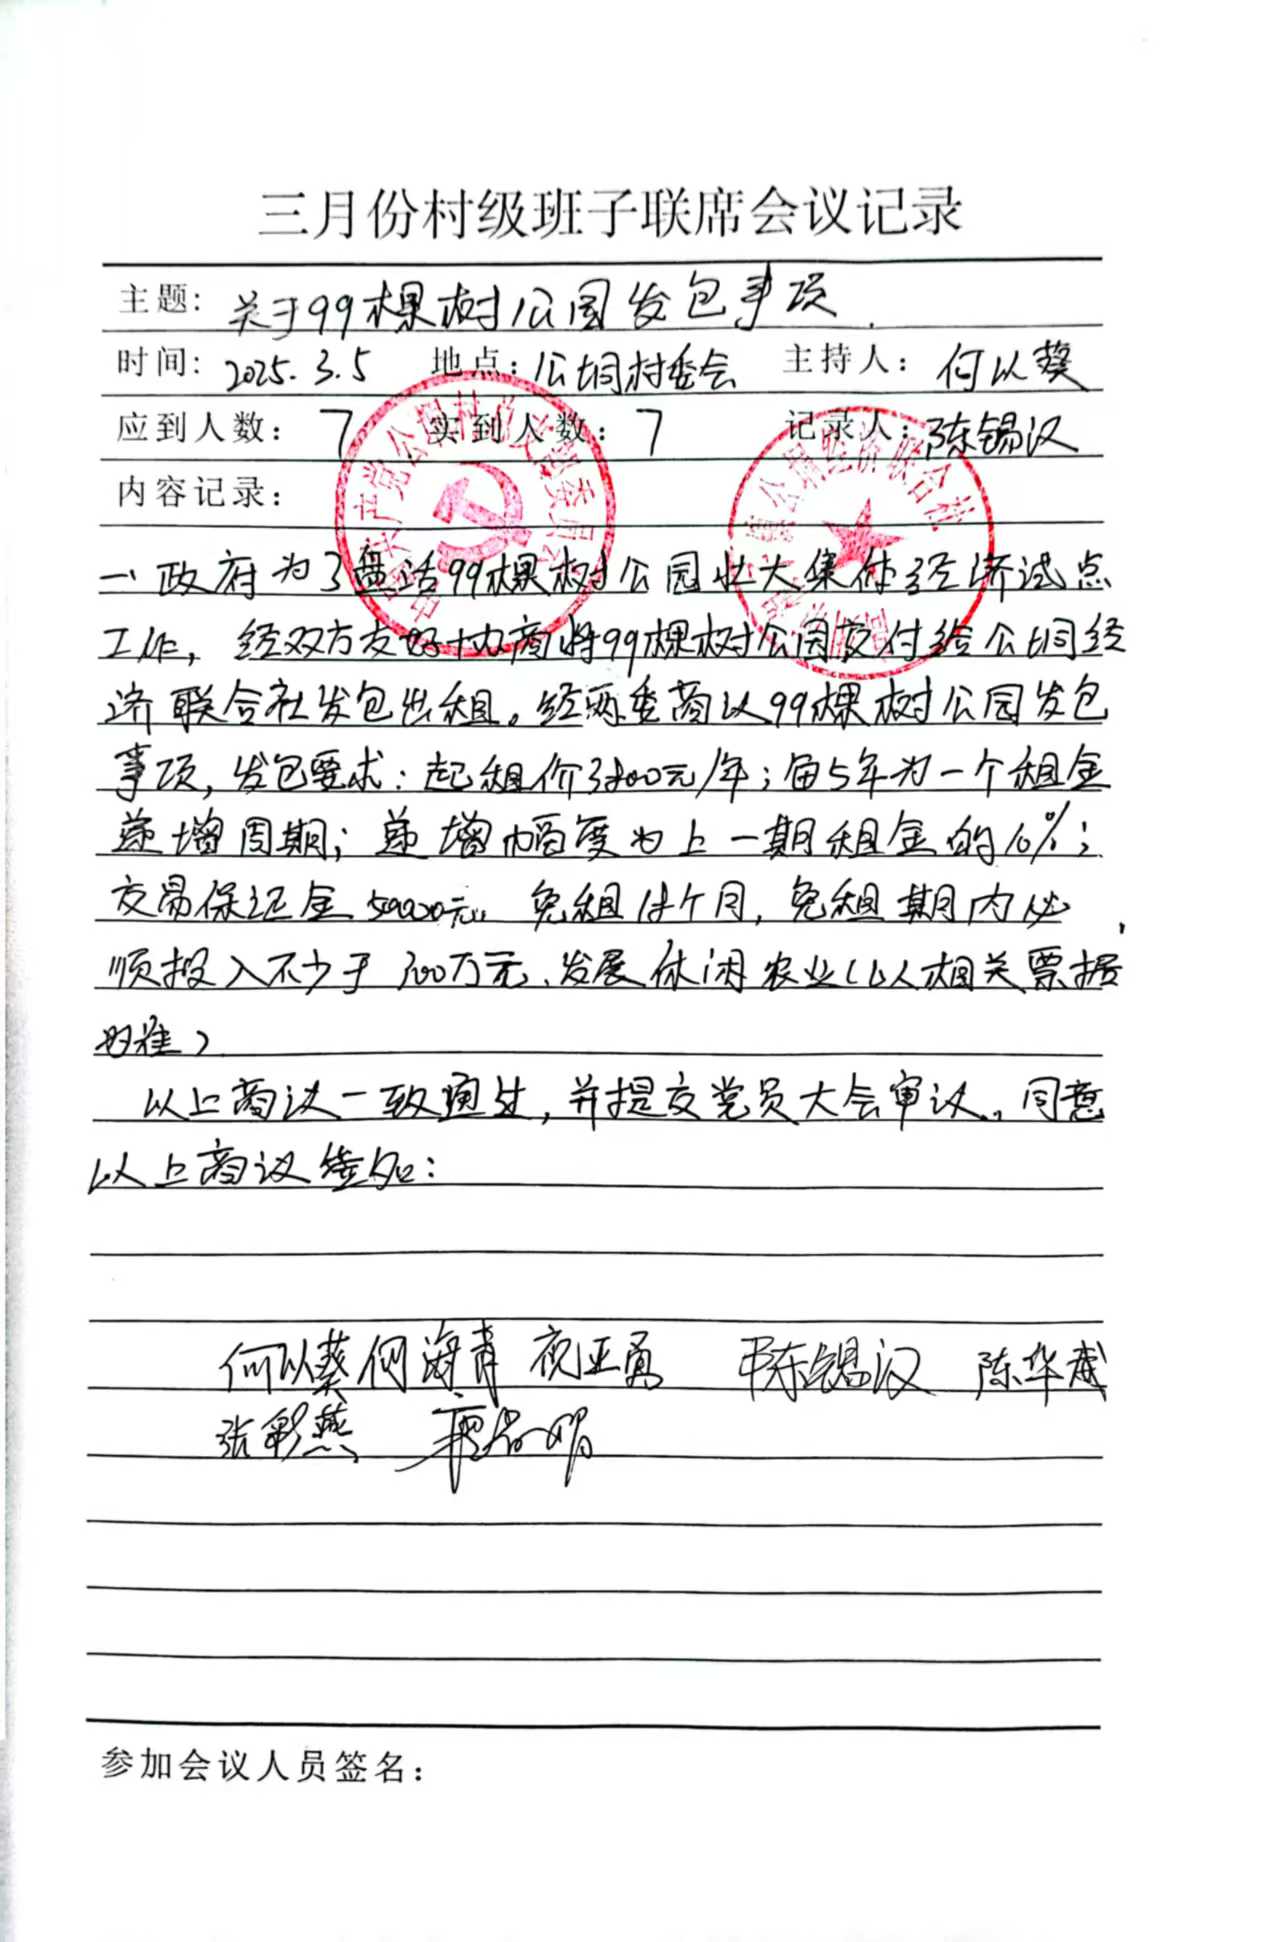 三月份村级班子联席会议记录
主题: 关于99棵树公园发包事项.
时间: 2025.3.5 地点: 公垌村委会 主持人: 何以葵
应到人数: 7 实到人数: 7 记录人: 陈锡汉
内容记录:
一、政府为了盘活99棵树公园壮大集体经济试点
工作，经双方友好协商将99棵树公园交付给公垌经
济联合社发包出租。经两委商议99棵树公园发包
事项，发包要求：起租价 元/年；每5年为一个租金
递增周期；递增幅度为上一期租金的10%；
交易保证金50000元。免租18个月，免租期内必
须投入不少于300万元、发展休闲农业（以相关票据
为准）
以上商议一致通过，并提交党员大会审议。同意
以上商议签名：
何以葵 何海青 祝亚勇 陈锡汉 陈华
张彩燕 明
参加会议人员签名：